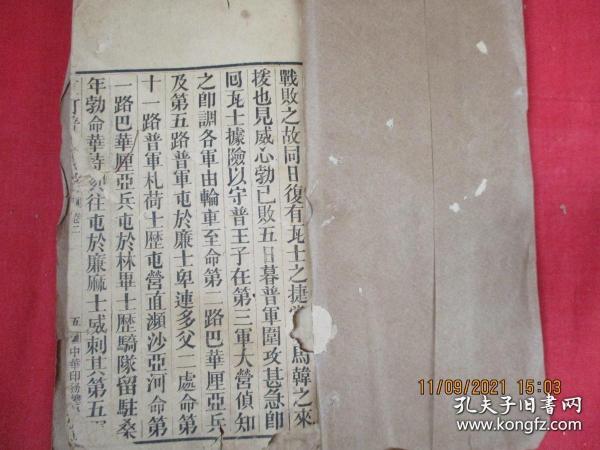 戰敗之故同日復有瓦士之捷當 馬韓之來
援也見威心勃已敗五日暮普軍圍攻甚急卽
囘瓦士據險以守普王子在第三軍大營偵知
之卽調各軍由輪車至命第二路巴華厘亞兵
及第五路普軍屯於廉士卑連多父二處命第
十一路普軍札荷士歷屯營直瀕沙亞河命第
一路巴華厘亞兵屯於林畢士歷騎隊留駐桑
年勃命華 往屯於廉麻士威刺其第五
卷二
五
中華印務總
11/09/2021 15:03
孔夫子旧书网
www.kongfz.com